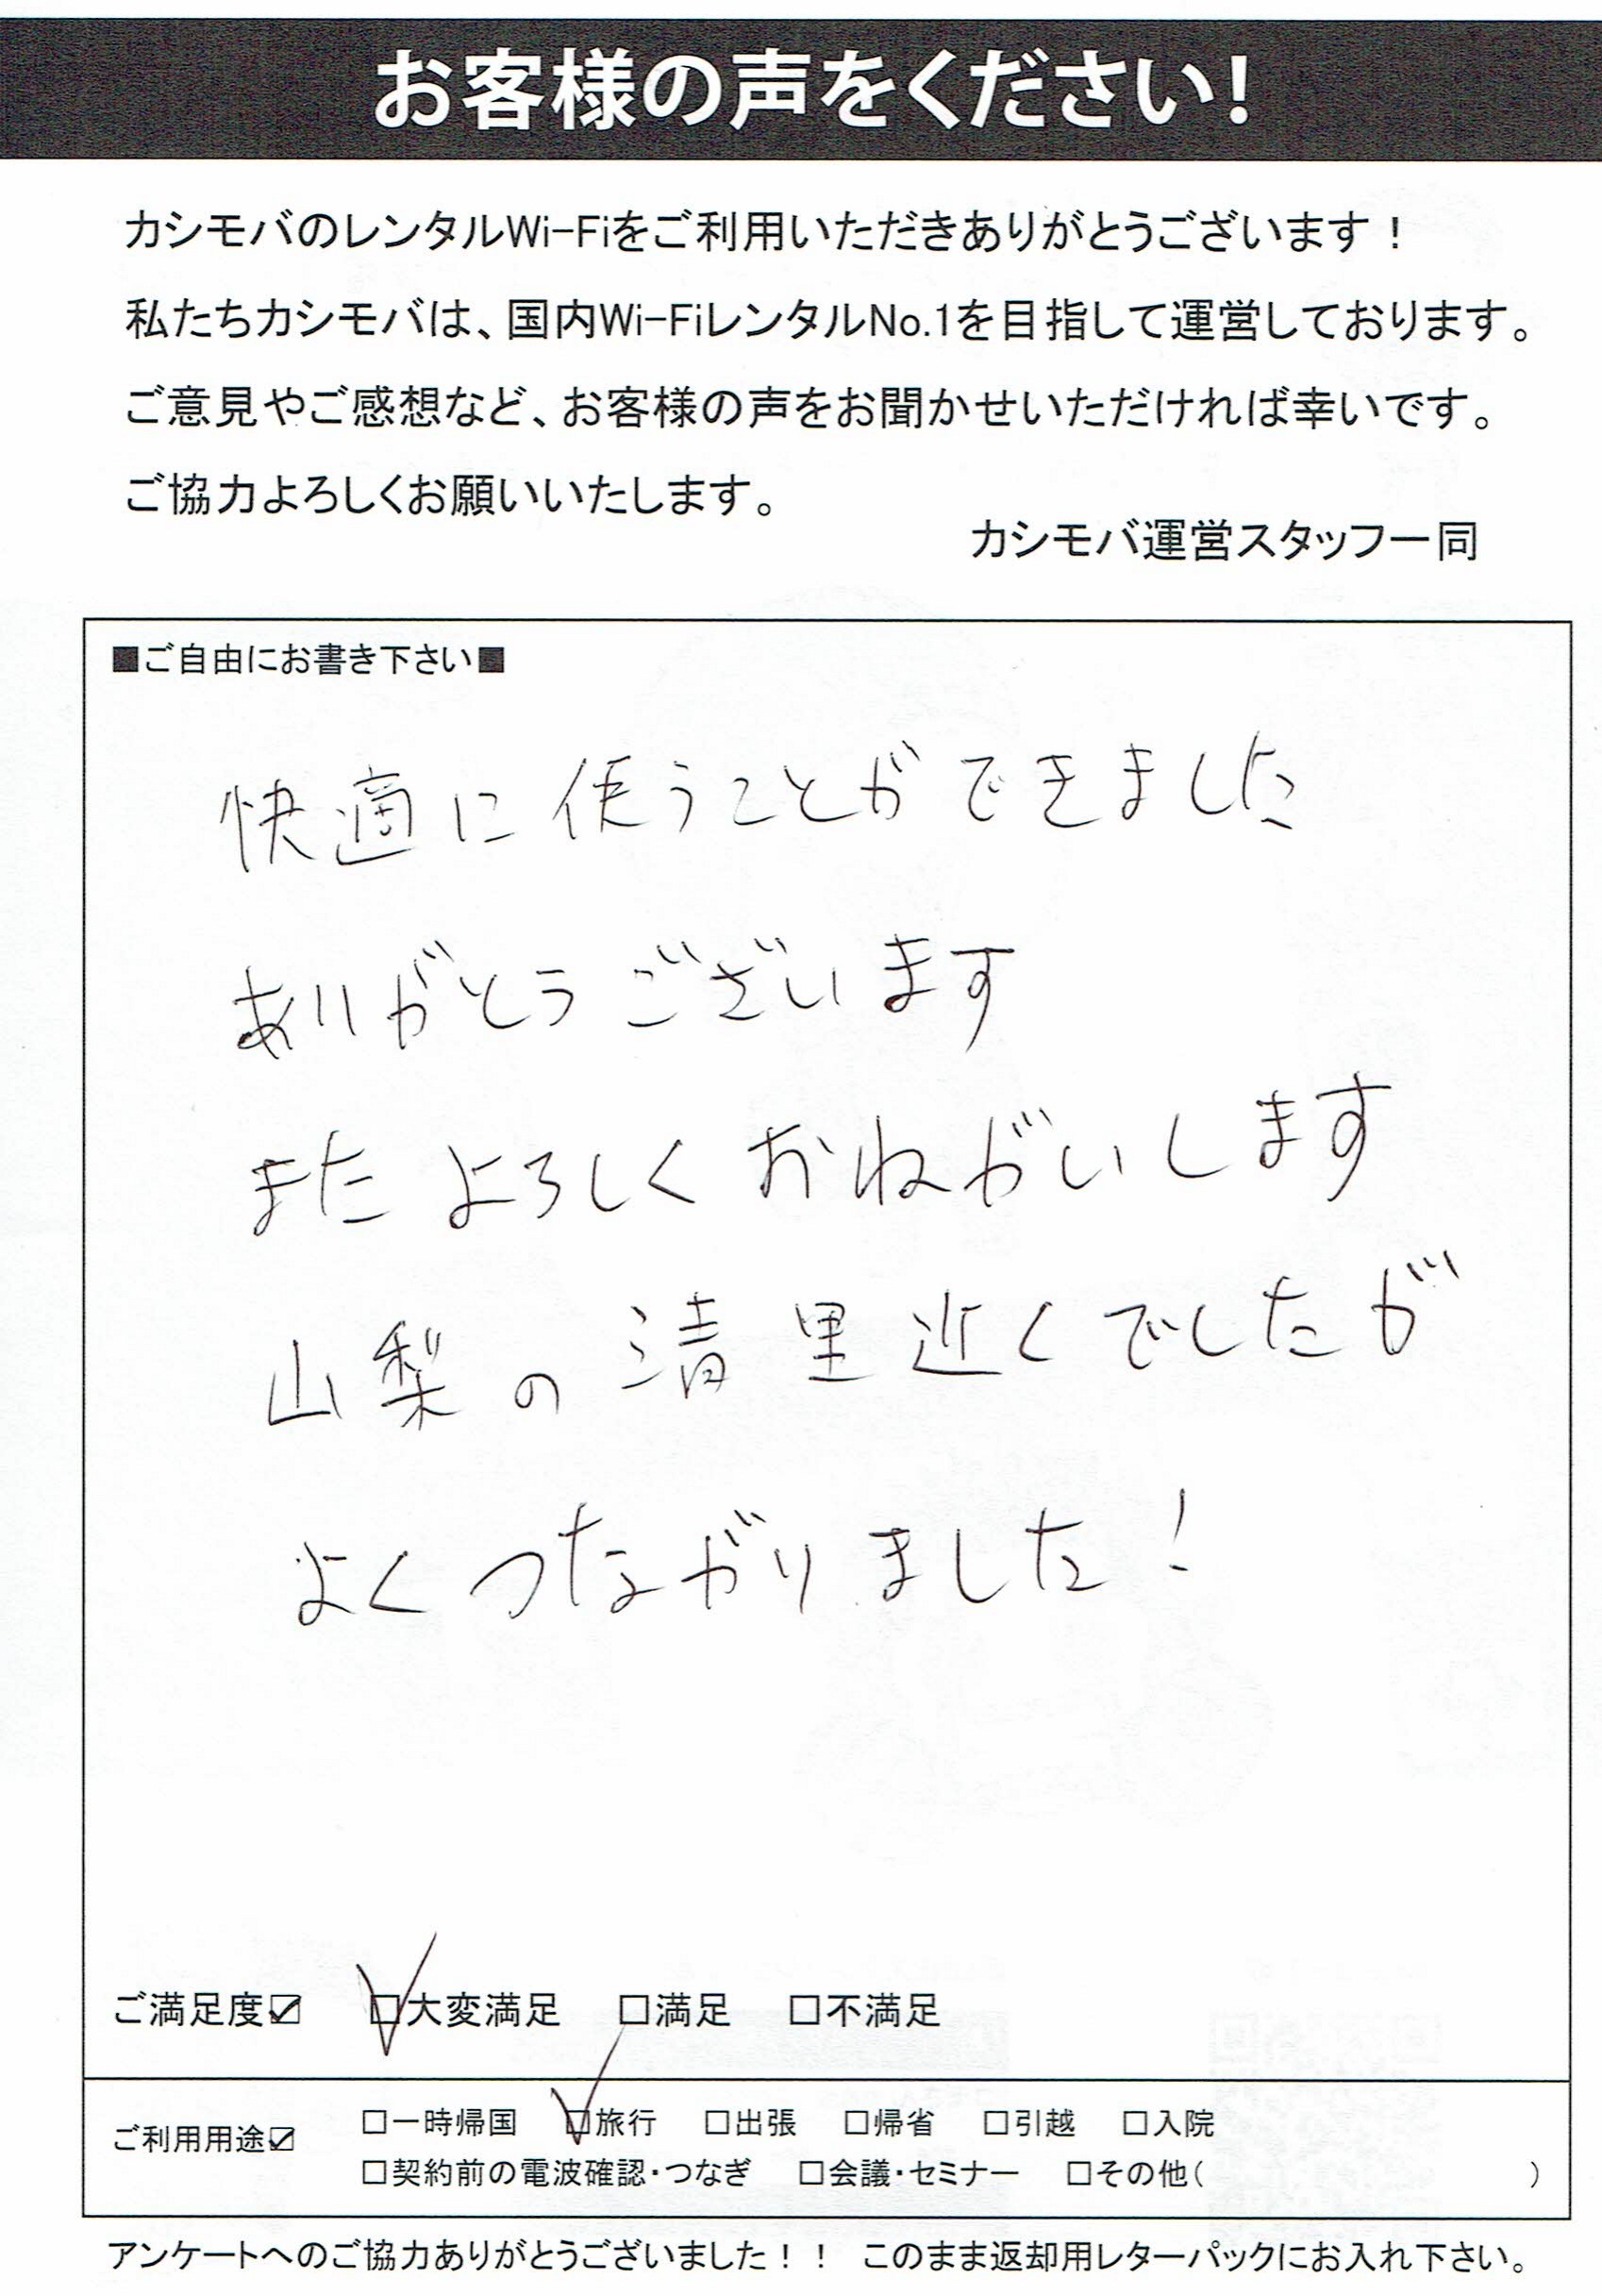 お客様の声をください!
カシモバのレンタルWi-Fiをご利用いただきありがとうございます！
私たちカシモバは、国内Wi-FiレンタルNo.1を目指して運営しております。
ご意見やご感想など、お客様の声をお聞かせいただければ幸いです。
ご協力よろしくお願いいたします。
カシモバ運営スタッフ一同
■ご自由にお書き下さい■
快適に使うことができました
ありがとうございます
また よろしく おねがいします
山梨の清里近くでしたが
よくつながりました！
ご満足度☑ □大変満足 □満足 □不満足
ご利用用途☑ □一時帰国 □旅行 □出張 □帰省 □引越 □入院
□契約前の電波確認・つなぎ □会議・セミナー □その他( )
アンケートへのご協力ありがとうございました！！ このまま返却用レターパックにお入れ下さい。